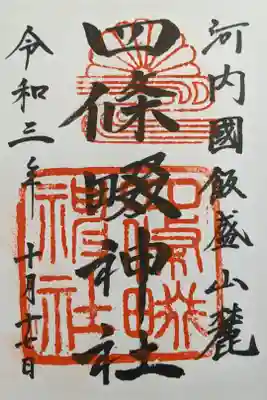 河内國飯盛山麓
四條畷神社
令和三年 十月十七日
四條畷
神社